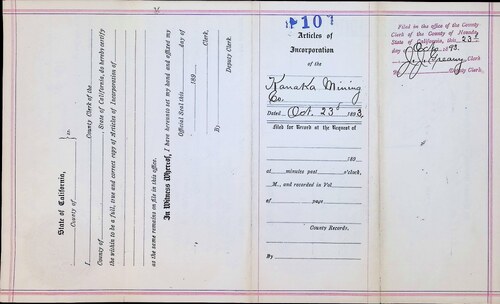 State of California,
County of } ss.
I County Clerk of the
County of State of California, do hereby certify
the within to be a full, true and correct copy of Articles of Incorporation of
as the same remains on file in this office.
In Witness Whereof, I have hereunto set my hand and affixed my
Official Seal this day of
189
Clerk,
By
Deputy Clerk.
107
Articles of
Incorporation
of the
Kanaka Mining
Co.
Dated Oct. 23d 1893
Filed for Record at the Request of
189
at minutes past o'clock,
M., and recorded in Vol
of page
County Records.
By
Filed in the office of the County
Clerk of the County of Nevada
State of California, this 23d
day of Oct 1893.
J. J. Greany Clerk
By County Clerk.